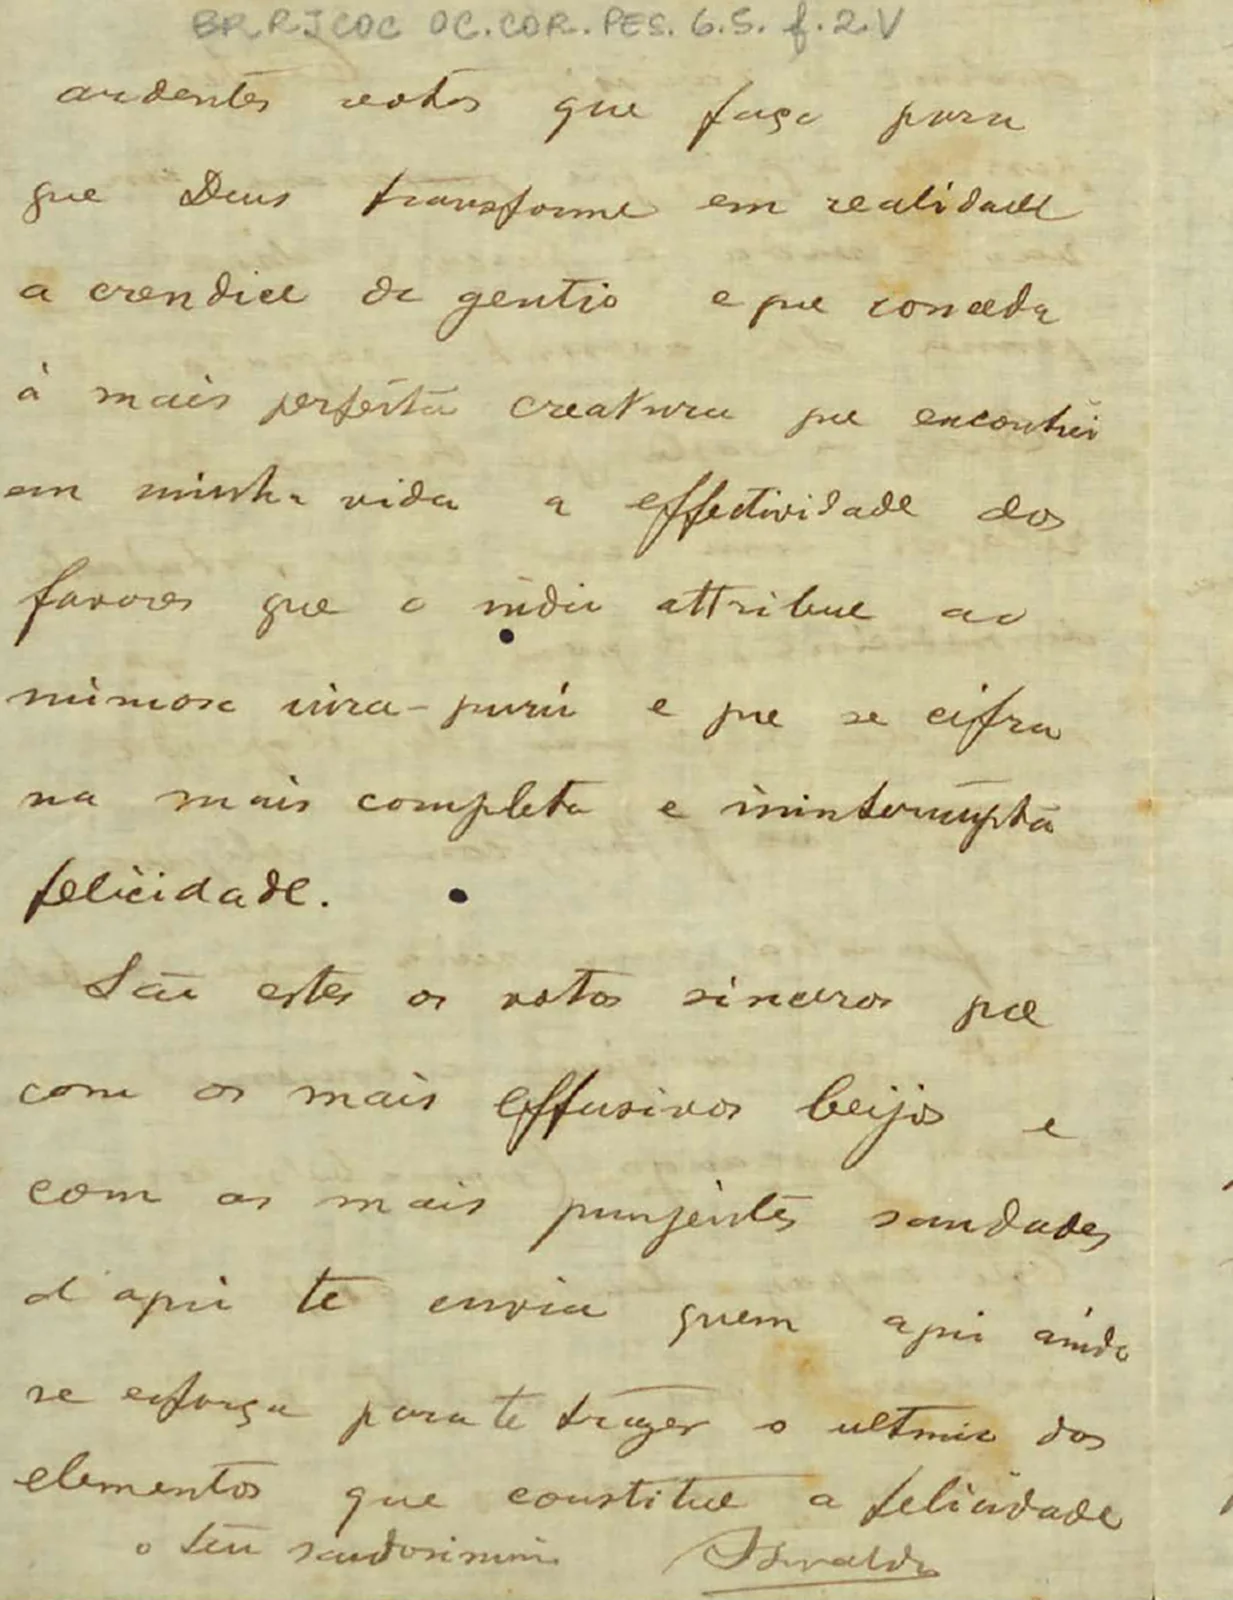 BR.RJCOC OC.COR.PES. 6.5. f.2.V
ardentes votos que faço para
que Deus transforme em realidade
a crendice do gentio e que conceda
à mais perfeita creatura que encontrei
em minha vida a effectividade dos
favores que o indio attribue ao
mimoso uira-purú e que se cifra
na mais completa e ininterrupta
felicidade.
São estes os votos sinceros que
com os mais effusivos beijos e
com as mais pungentes saudades
d'aqui te envia quem aqui ainda
se esforça para te trazer o ultimo dos
elementos que constitue a felicidade
o teu saudosissimo Oswaldo